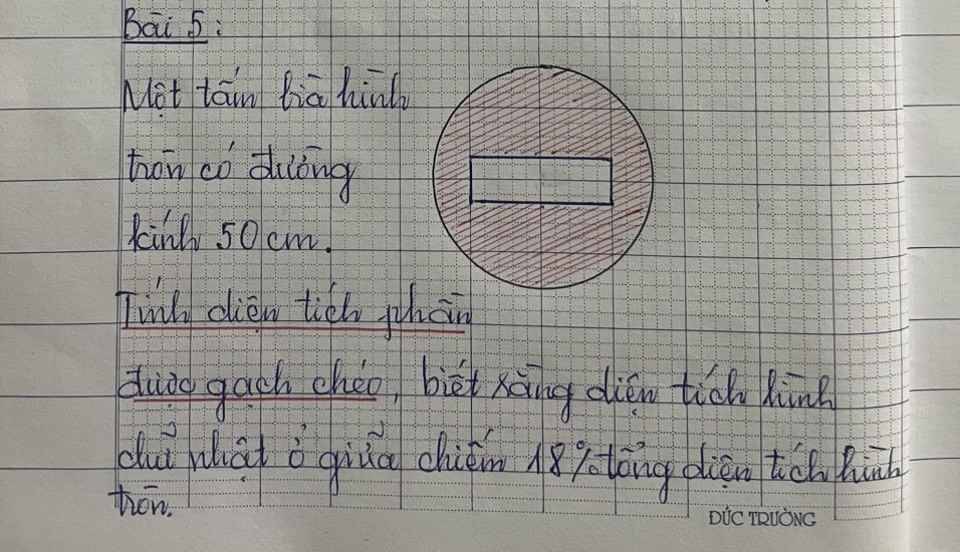 Bài 5:
Một tấm bìa hình
tròn có đường
kính 50 cm.
Tính diện tích phần
được gạch chéo, biết rằng diện tích hình
chữ nhật ở giữa chiếm 18% tổng diện tích hình
tròn.
ĐỨC TRƯỜNG